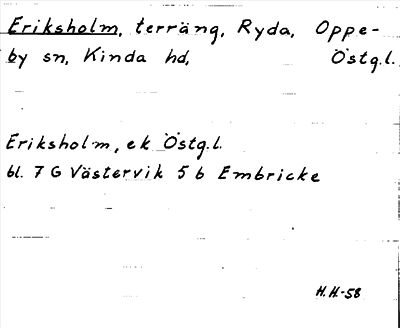 Eriksholm, terräng, Ryda, Oppe-
by sn, Kinda hd, Östg.l.
Eriksholm, ek Östg.l.
bl. 7 G Västervik 5 b Embricke
H.H.-58